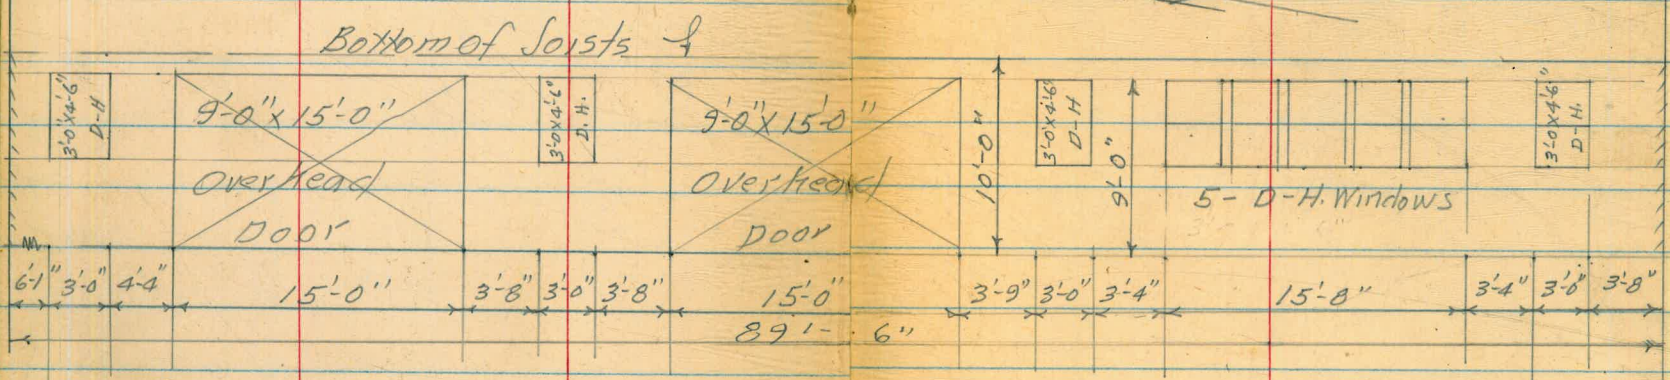 Bottom of Joists
3'-0"x4'-6"
D-H
9'-0"x15'-0"
Overhead
Door
3'-0x4'-6"
D.H.
9'-0"x15'-0"
Overhead
Door
10'-0"
3'-0x4'-6
D-H
9'-0"
5-D-H.Windows
3'-0x4'-6"
D-H.
6'-1" 3'-0" 4'-4" 15'-0" 3'-8" 3'-0" 3'-8" 15'-0" 3'-9" 3'-0" 3'-4" 15'-8" 3'-4" 3'-0" 3'-8"
89'-6"